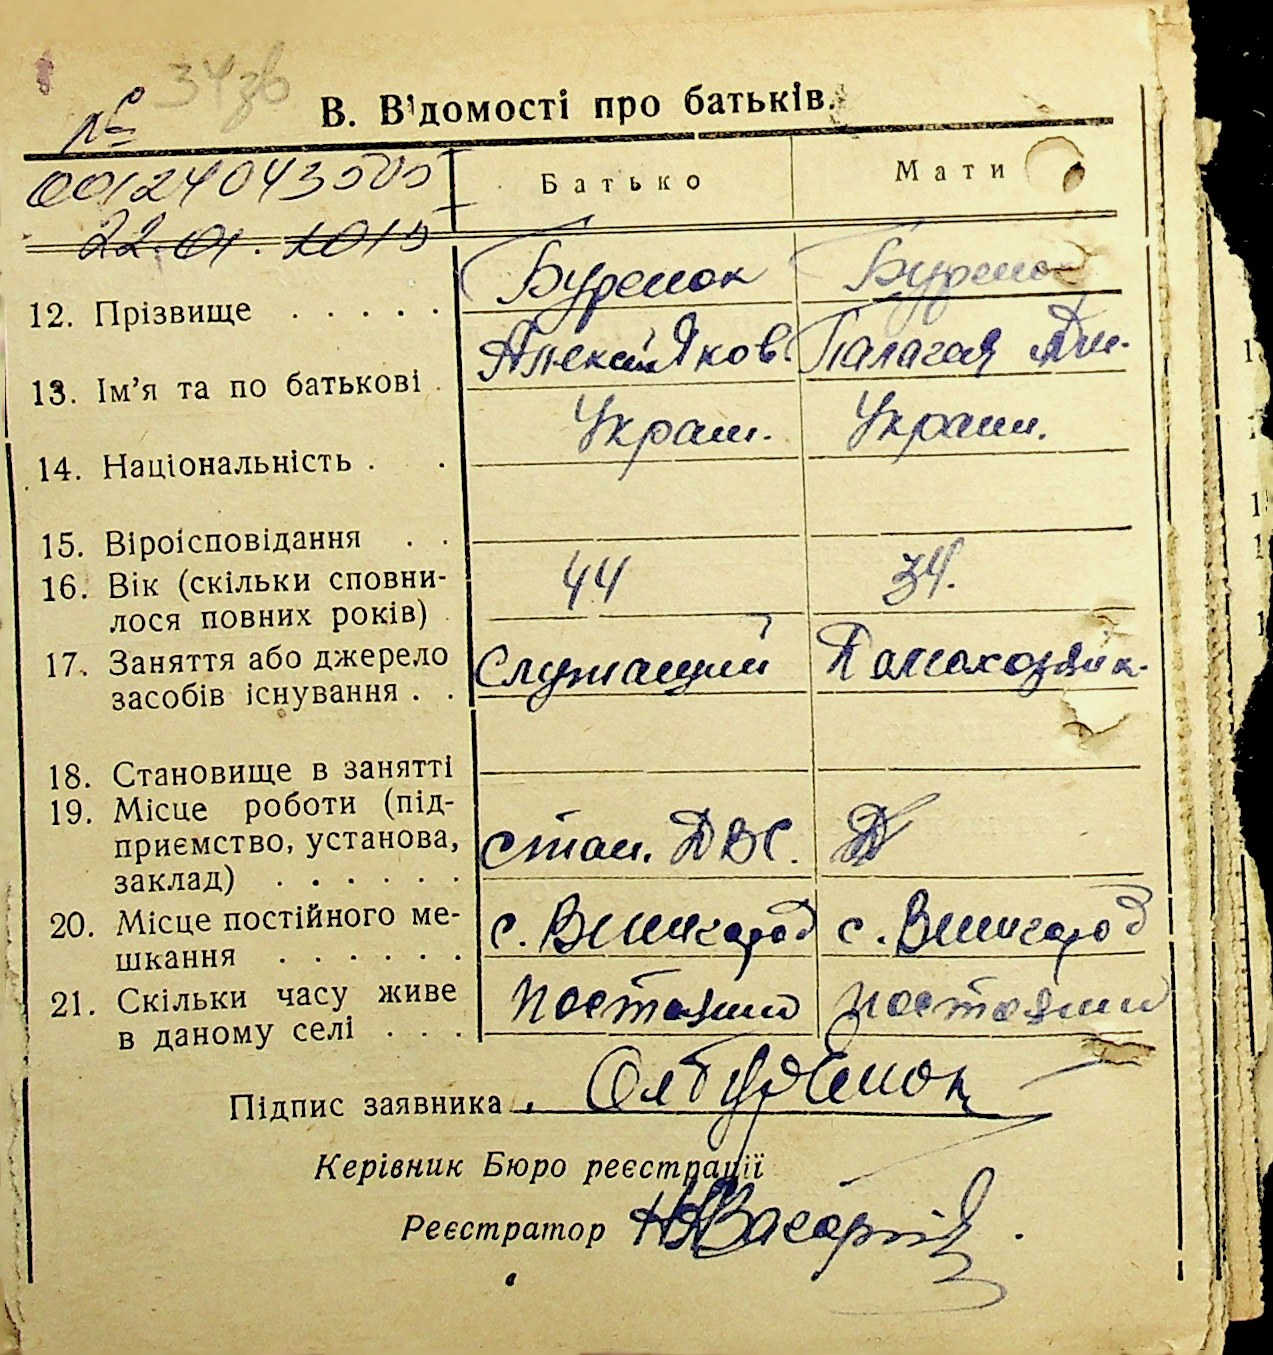 34зв
В. Відомості про батьків.
№
00124043505
22.01.2015
Батько Мати
12. Прізвище . . . . . Буренок Буренок
13. Ім'я та по батькові . Алексей Яков. Палагея Дм.
14. Національність . . Украин. Украин.
15. Віроісповідання . .
16. Вік (скільки сповни-
лося повних років) 44 34.
17. Заняття або джерело
засобів існування . . Служащий Домохозяйк.
18. Становище в занятті
19. Місце роботи (під-
приємство, установа,
заклад) . . . . . . стан. ДВС.
20. Місце постійного ме-
шкання . . . . . . с. Вишгород с. Вишгород
21. Скільки часу живе
в даному селі . . . постоянно постоянно
Підпис заявника .
Керівник Бюро реєстрації
Реєстратор